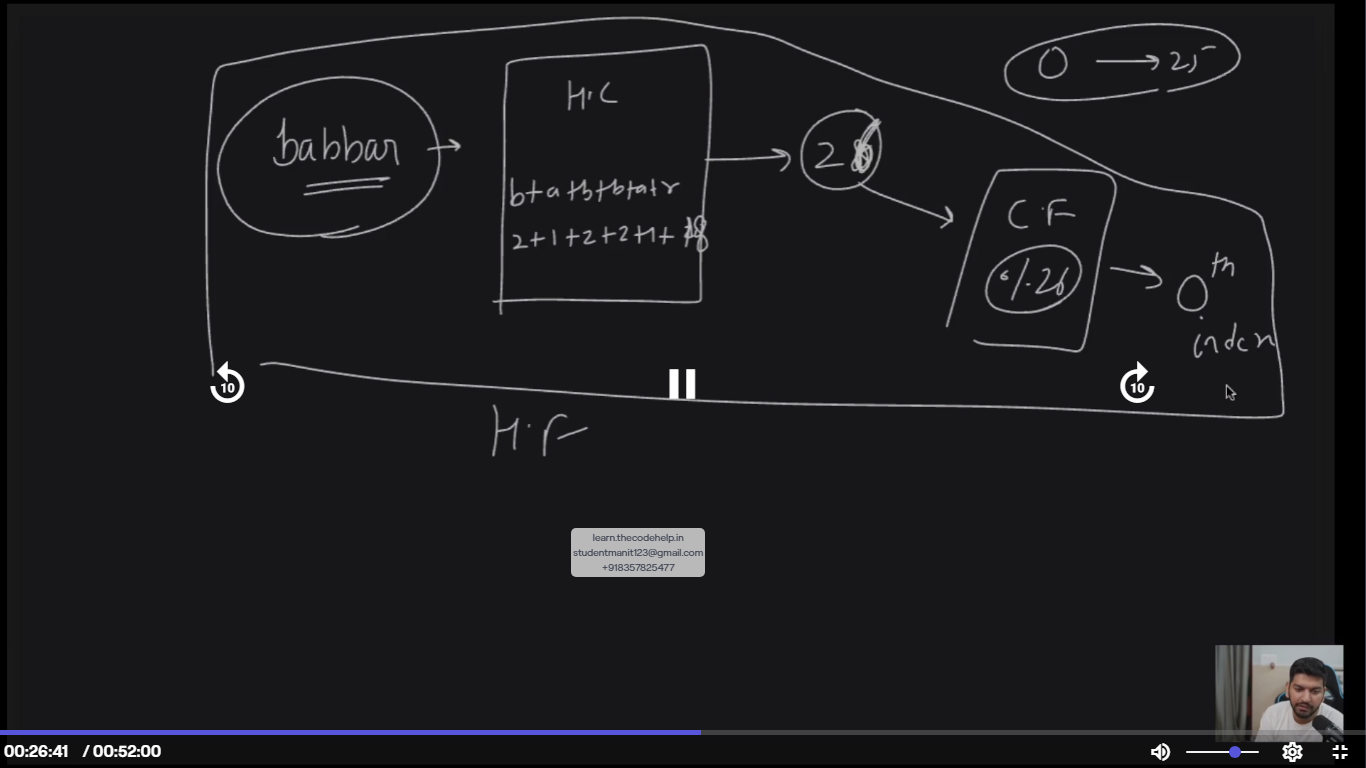 0 → 25
H.C
babbar →
b+a+b+b+a+r
2+1+2+2+1+18
→ 26
C.F
%26
→ 0th
index
10
10
H.F
learn.thecodehelp.in
studentmanit123@gmail.com
+918357825477
00:26:41 / 00:52:00